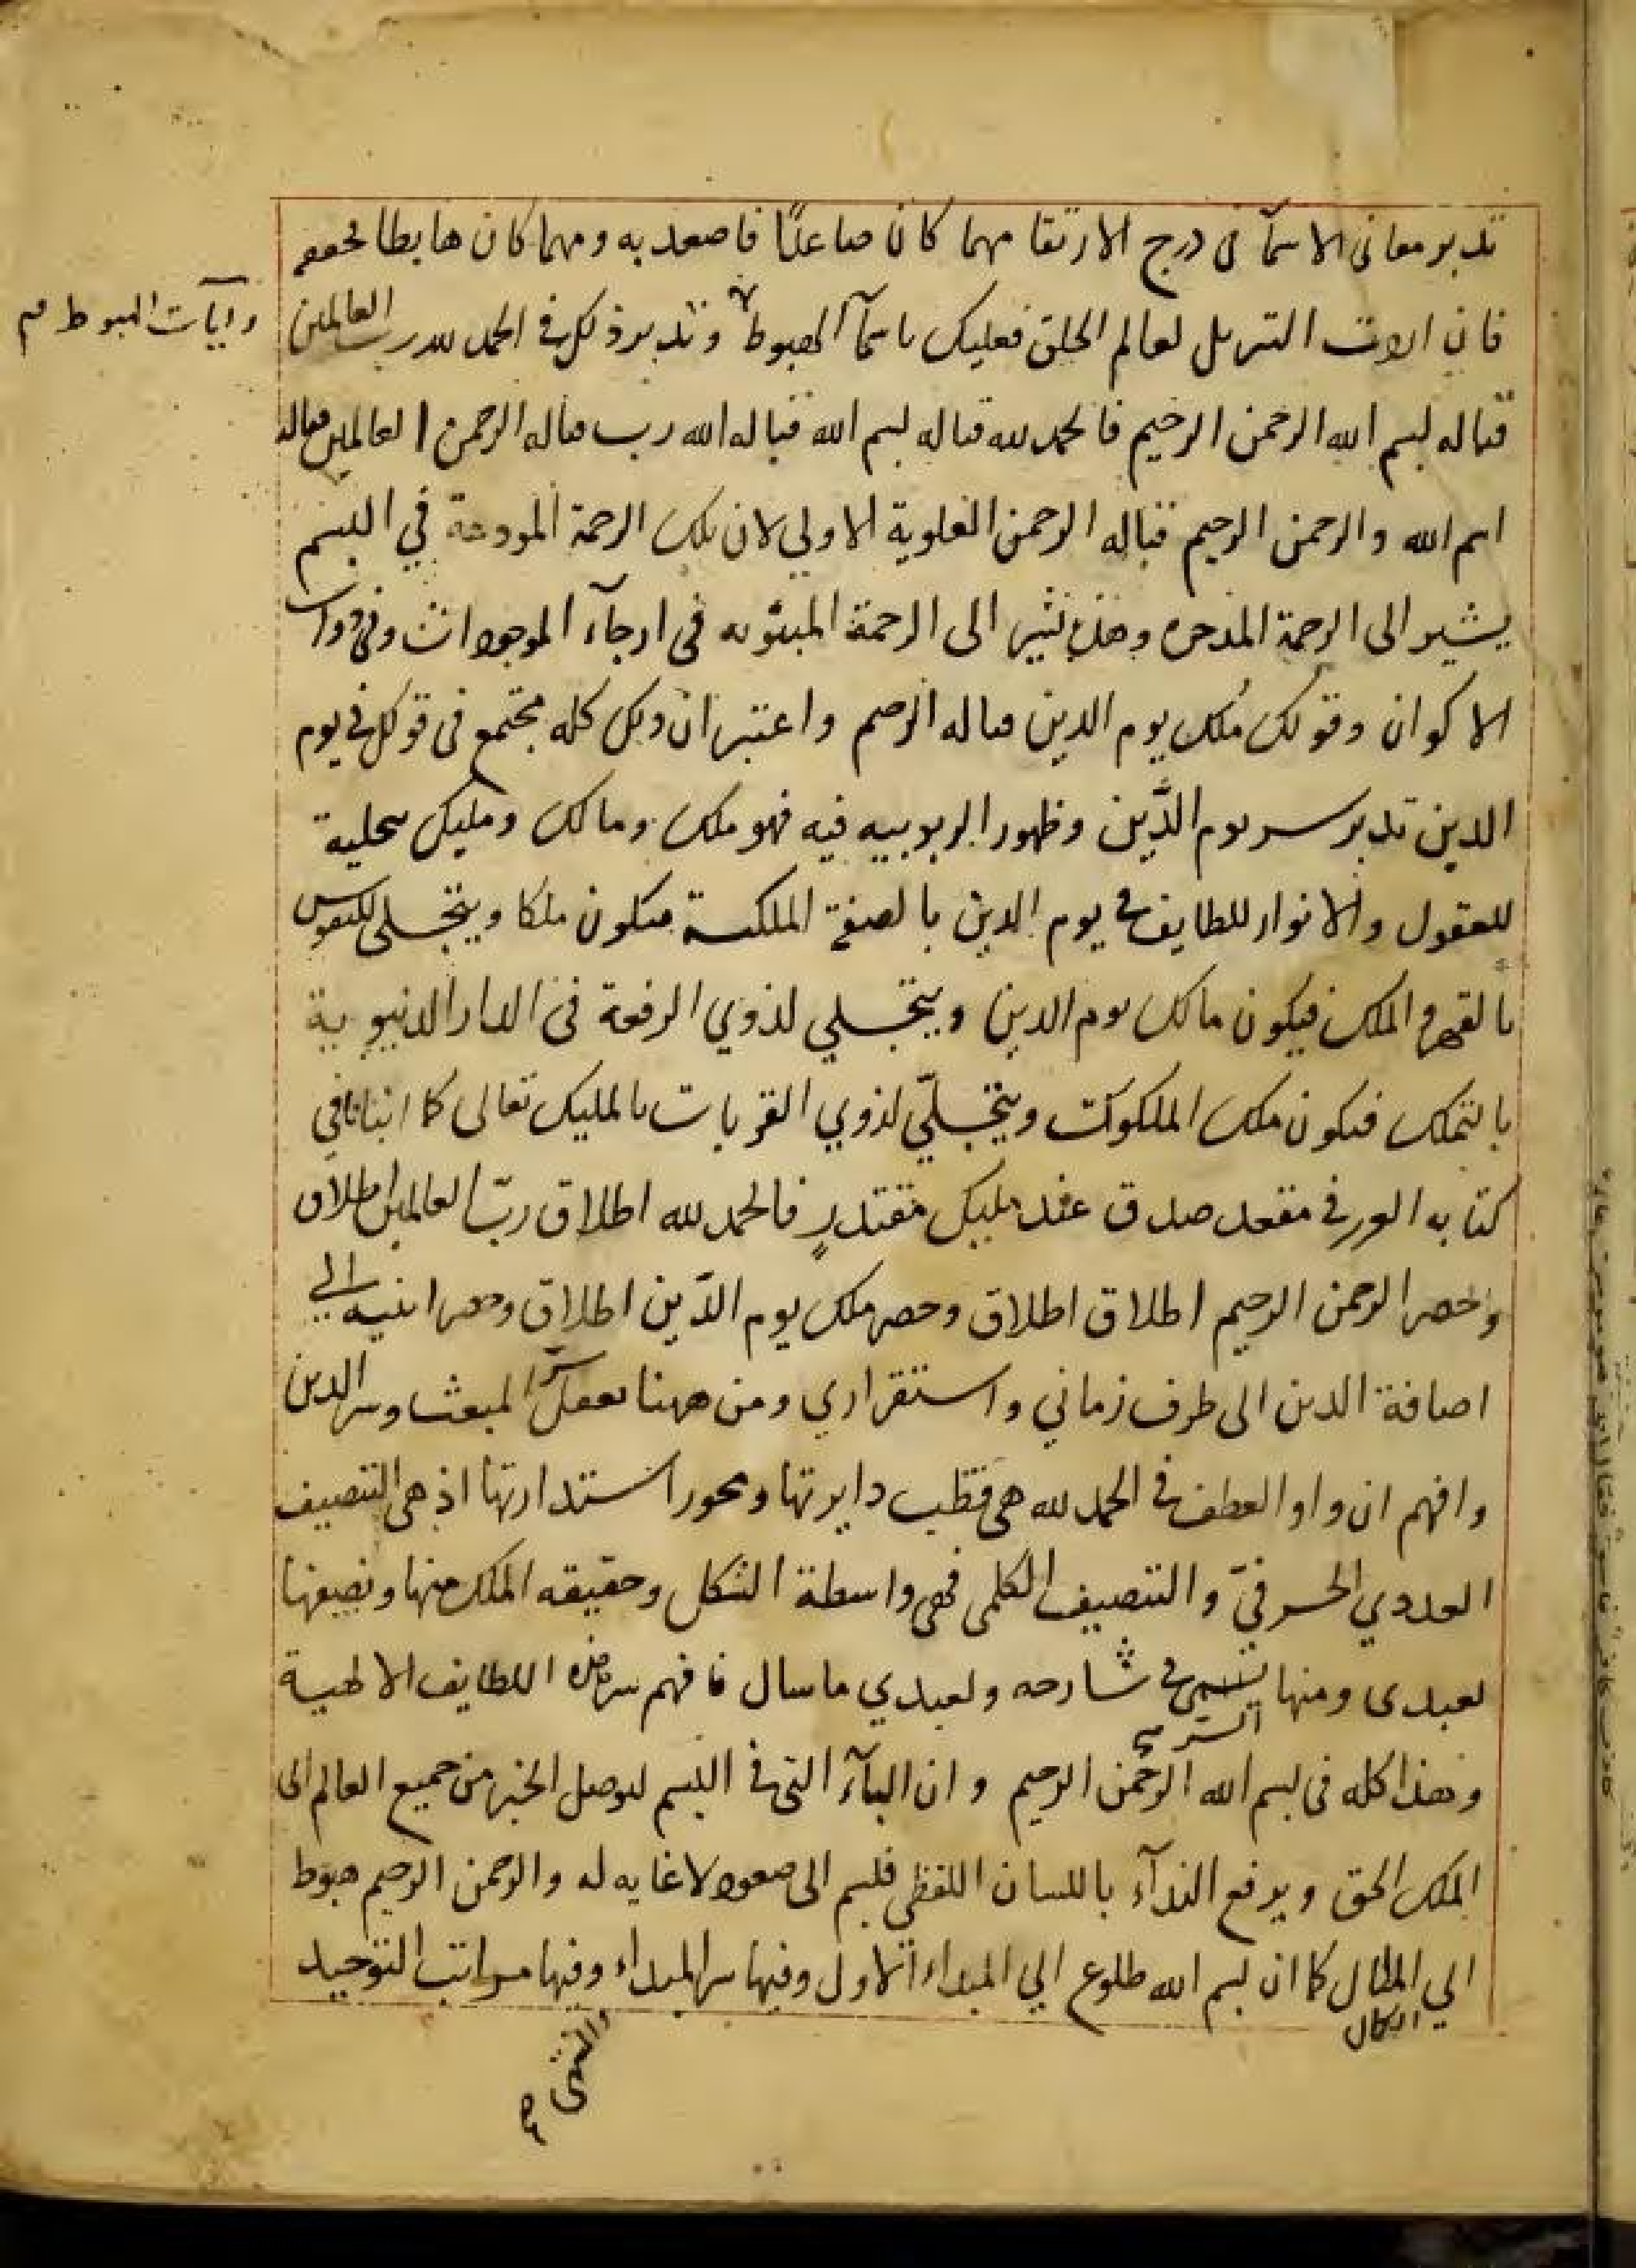 تدبر معانى الاسمآ فى درج الارتقا مهما كان صاعدًا فاصعد به ومهما كان هابطا
فان التنزيل لعالم الخلق فعليك باسمآ الهبوط وتدبر ذلك فى الحمد لله رب العالمين
وآيات الهبوط
قباله بسم الله الرحمن الرحيم فالحمد لله قباله بسم الله قباله الله رب قباله الرحمن العالمين قباله
اسم الله والرحمن الرحيم قباله الرحمن العلوية الاولي لان تلك الرحمة المودعة في البسم
يشير الى الرحمة وهذه تشير الى الرحمة المبثوثه فى ارجآء الموجودات وفى ذوات
الاكوان وقولك مُلك يوم الدين قباله الرحيم واعتبر ان ذلك كله مجتمع فى قولك فى يوم
الدين تدبر سر يوم الدِّين وظهور الربوبيه فيه فهو ملك ومالك ومليك
للعقول والانوار للطايف فى يوم الدين بالصفة الملكية فيكون ملكا ويتجلى للنفوس
بالقهر والملك فيكون مالك يوم الدين ويتجلي لذوي الرفعة فى الدار الدنيوية
بالتملك فيكون ملك الملكوت ويتجلّى لذوي القربات بالمليك تعالى كما انبانا في
كتابه فى مقعد صدق عند مليك مقتدرٍ فالحمد لله اطلاق ربّ العالمين اطلاق
وحصر الرحمن الرحيم اطلاق اطلاق وحصر ملك يوم الدّين اطلاق وحصر الي
اضافة الدين الى طرف زماني واستقراري ومن ههنا تعقل سرّ المبعث وسر الدين
وافهم ان واو العطف فى الحمد لله هى قطب دايرتها ومحور استدارتها اذ هى التنصيف
العددي الحرفيّ والتنصيف الكلمى فهى واسطة الشكل وحقيقه الملك منها ونصفها
لعبدى ومنها ولعبدي ما سال فافهم سر هذه اللطايف الالهية
وهذا كله فى بسم الله الرحمن الرحيم وان البآء التى فى البسم لتوصل الخبر من جميع العالم الى
الملك الحق ويرفع الندآء باللسان اللفظي فلبسم الى صعود لا غايه له والرحمن الرحيم هبوط
الي المطال كما ان بسم الله طلوع الي المبداء الاول وفيها سر المبداء وفيها مراتب التوحيد
الكمال